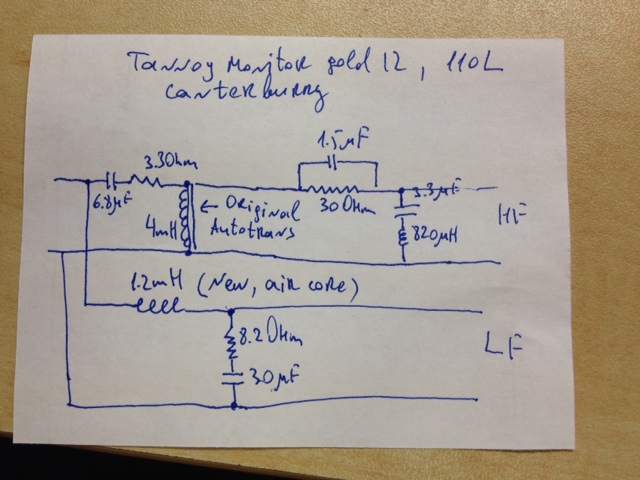 Tannoy Monitor gold 12, 110L
Canterburry
1.5µF
3.3Ohm
6.8µF
30Ohm
3.3µF
HF
← Original
Autotrans
4mH
820µH
1.2mH (New, air core)
8.2Ohm
LF
30µF